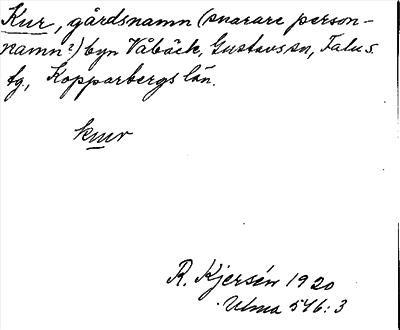 Kur, gårdsnamn (snarare person-
namn?) byn Våbäck, Gustavs sn, Falu s.
tg., Kopparbergs län.
kur
R. Kjersén 1920
Ulma 546:3